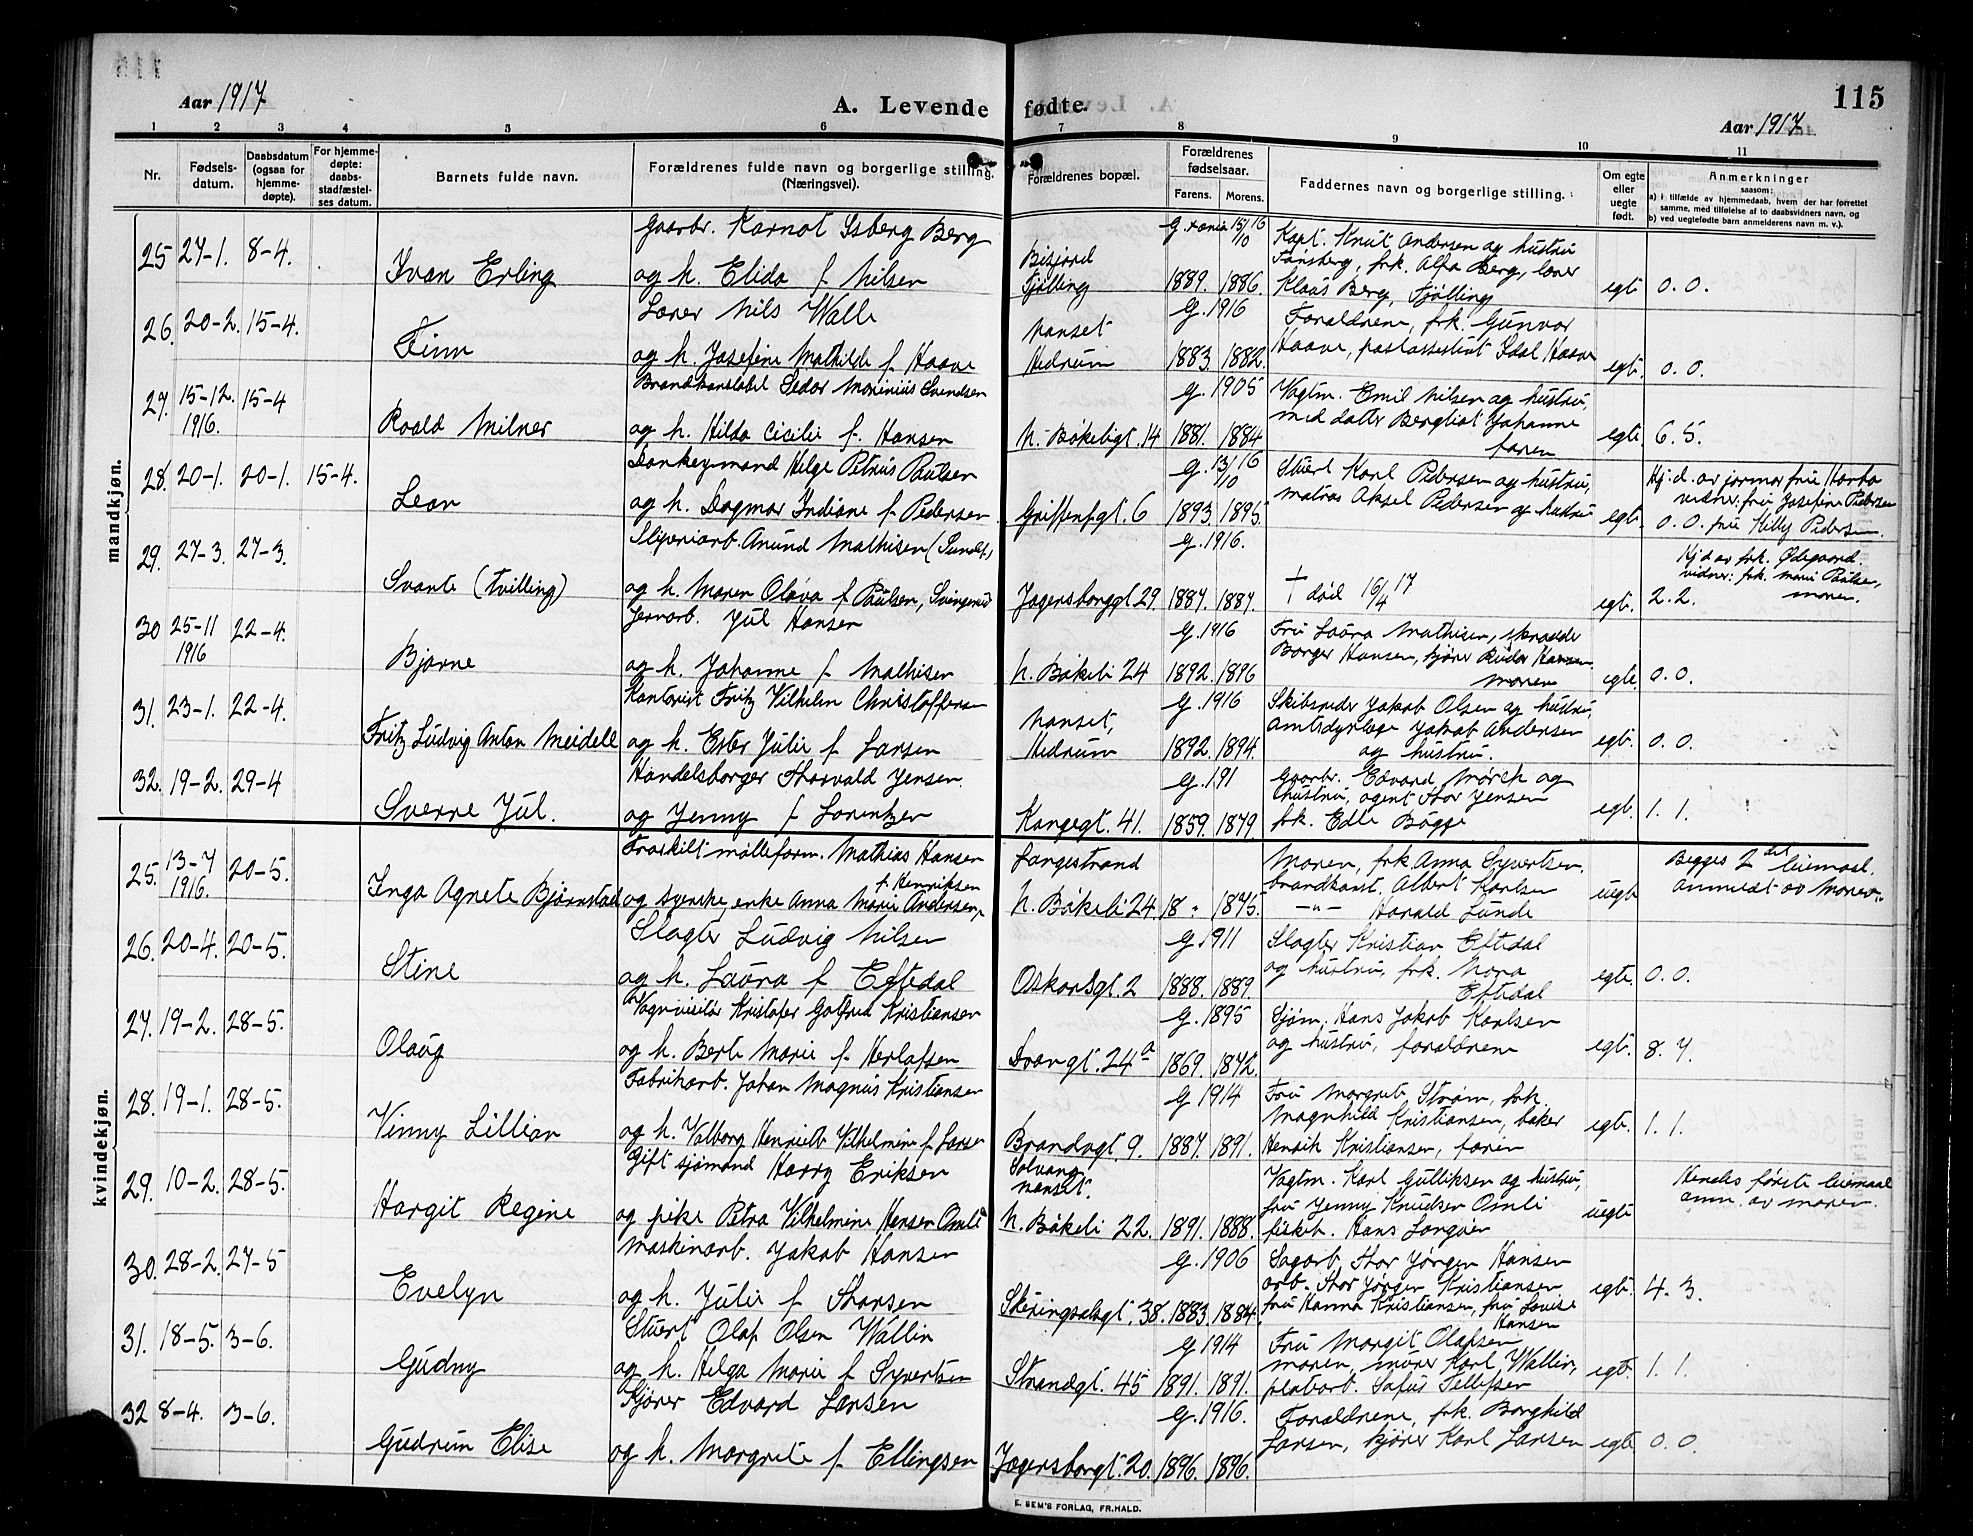 Aar 1917
A. Levende fødte.
115
Aar 1917
1 2 3 4 5 6 7 8 9 10 11
Nr.
Fødsels-
datum.
Daabsdatum
(ogsaa for
hjemme-
døpte).
For hjemme-
døpte:
daabs-
stadfæstel-
ses datum.
Barnets fulde navn.
Forældrenes fulde navn og borgerlige stilling.
(Næringsvei).
Forældrenes bopæl.
Forældrenes
fødselsaar.
Farens. Morens.
Faddernes navn og borgerlige stilling.
Om egte
eller
uegte
født.
Anmerkninger
saasom:
a) i tilfælde av hjemmedaab, hvem der har forrettet
samme, med tilføielse af to daabsvidners navn, og
b) ved uegtefødte barn anmelderens navn m. v.).
mandkjøn.
Gaarbr. Karnot Isberg Berg G. 15/10 16 Kapt. Knut Andersen og hustru
25 27-1. 8-4. Ivan Erling og h. Elida f Nilsen Tjølling 1889. 1886. Tønsberg, frk. Alfa Berg,
Klaus Berg, Tjølling egte 0. 0.
Lærer Nils Walle G. 1916 Forældrene, frk. Gunvor
26. 20-2. 15-4. Finn og h. Josefine Mathilde f. Haave Nanset Hedrum 1883. 1882. Haave, postassistent Haave egte. 0. 0.
Brandkonstabel Sedor Marinius Svendsen G. 1905 Vagtm. Emil Nilsen og hustru,
27. 15-12. 1916. 15-4 Roald Milner og h. Hilda Cicilie f. Hansen N. Bøkeligt. 14 1881. 1884 med datter Bergliot Johanne
faren egte 6. 5.
Donkeymand Helge Petrus Paulsen G. 13/10 16 Stuert Karl Pedersen og hustru, Hj. d. av jormor fru
28. 20-1. 20-1. 15-4. Leon og h. Dagmar Indiane f Pedersen Griffenf.gt. 6 1893. 1895. matros Aksel Pedersen og hustru egte. vidner: fru Josefine Pedersen
0. 0. fru Pedersen.
Slyveriarb. Anund Mathisen G. 1916. Hj. d av frk. Ødegaard.
29. 27-3. 27-3. Svante (tvilling) og h. Maren Olava f Paulsen, Jegersborggt 29. 1887. 1887. † død 16/4 17 egte. vidner: frk. Marie Paulsen,
2. 2. moren.
Jernarb. Jul Hansen G. 1916 Fru Laura Mathisen,
30 25-11 1916 22-4. Bjarne og h. Johanne f Mathisen N. Bøkeli 24 1892. 1896 Borger Hansen, kjører Hansen
moren egte. 0. 0.
Kontorist Fritz Vilhelm Christoffersen G. 1916 Skibsreder Jakob Olsen og hustru,
31. 23-1. 22-4. Fritz Ludvig Anton Meidell og h. Ester Julie f Larsen Nanset, Hedrum 1892. 1894. amtsdyrlæge Jakob Andersen
og hustru. egte. 0. 0.
Handelsborger Thorvald Jensen. G. 191 Gaarbr. Edvard Mørch og
32. 19-2. 29-4 Sverre Jul. og Jenny f Lorentzen Kongegt. 41. 1859. 1879 hustru, agent Thor Jensen
frk. Edle Bugge egte. 1. 1.
kvindekjøn.
Fraskilt mølleform. Mathias Hansen Langestrand Moren, frk. Anna Syvertsen. Begges 2det leiermaal
25. 13-7 1916. 20-5. Inga Agnete Bjørnstad og syerske, enke Anna Marie Andersen, f Henriksen N. Bøkeli 24. 18 - 1875. brandkonst. Albert Karlsen uegte anmeldt av moren.
-"- Harald Lunde
Slagter Ludvig Nilsen G. 1911 Slagter Kristian Eftedal
26. 20-4. 20-5. Stine og h. Laura f Eftedal Oskarsgt. 2 1888. 1889. og hustru, frk. Mora
Eftedal egte. 0. 0.
Vognvisitør Kristofer Gotfred Kristiansen G. 1895 Sjøm. Hans Jakob Karlsen
27. 19-2. 28-5. Olaug og h. Berte Marie f. Herlofsen 24 a 1869. 1872. og hustru, forældrene egte. 8. 7.
Fabrikarb. Johan Magnus Kristiansen G 1914 Fru Margrete Strøm, frk.
28. 19-1. 28-5. Vinny Lillian og h. Valborg Henriette Vilhelmine f. Larsen Brandvgt. 9. 1887. 1891. Magnhild Kristiansen, baker
Henrik Kristiansen, faren egte. 1. 1.
Gift sjømand Harry Eriksen Solvang Nanset. Vagtm. Karl Gulliksen og hustru, Hendes første leiermaal
29. 10-2. 28-5. Hargit Regine og pike Petra Vilhelmine Hansen Omli N. Bøkeli 22. 1891. 1888. fru Jenny Knudsen Omli uegte anm. av moren.
Hans Langøen
Maskinarb. Jakob Hansen G. 1906 Sagarb. Thor Jørgen Hansen
30. 28-2. 27-5 Evelyn og h. Julie f Thorsen Skiringsalsgt. 38. 1883. 1884. arb. Thor Jørgen Kristiansen
fru Hanna Kristiansen, fru Lovise
Hansen egte. 4. 3.
Stuert Olaf Olsen Wallin G 1914 Fru Margit Olafsen
31. 18-5. 3-6. Gudny og h. Helga Marie f Syvertsen Strandgt. 45 1891. 1891. moren, murer Karl Wallin,
platearb. Tellefsen egte. 1. 1.
Kjører Edvard Larsen G. 1916. Forældrene, frk. Borghild
32 8-4. 3-6. Gudrun Elise og h. Margrete f Ellingsen Jegersborgt. 20. 1896. 1896. Larsen, kjører Karl Larsen egte 0. 0.
E. SEM'S FORLAG, FR.HALD.